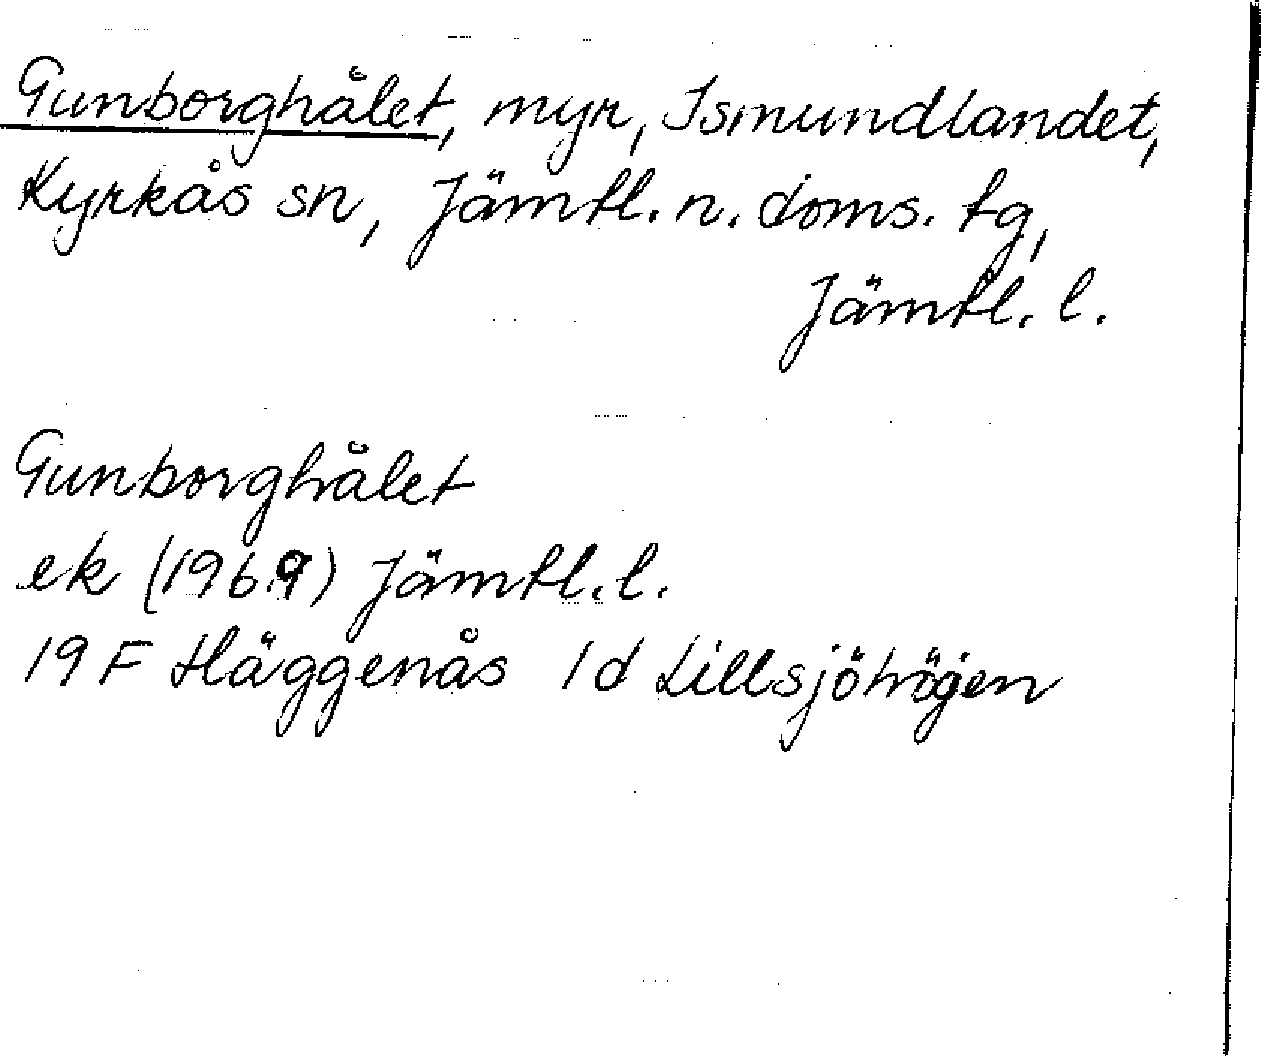 Gunborghålet, myr, Ismundlandet,
Kyrkås sn, Jämtl. n. doms. tg,
Jämtl. l.
Gunborghålet
ek (1969) Jämtl. l.
19 F Häggenås 1d Lillsjöhögen